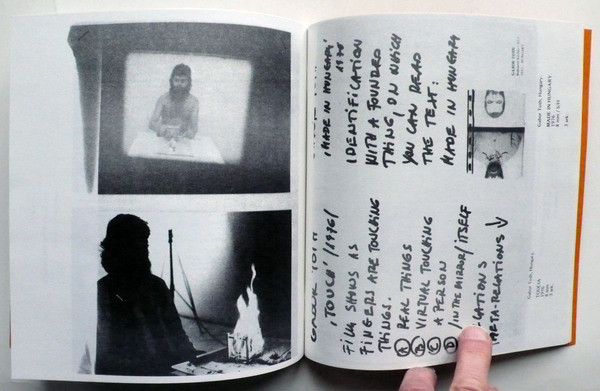 'TOUCH' /1976/
FILM SHOWS AS
FINGERS ARE TOUCHING
THINGS.
A REAL THINGS
B VIRTUAL TOUCHING
C A PERSON
D /IN THE MIRROR/ITSELF
META-RELATIONS ↓
Gabor Toth, Hungary.
1976
8 mm
'MADE IN HUNGARY'
1976
IDENTIFICATION
WITH A FOUNDED
THING, ON WHICH
YOU CAN READ
THE TEXT:
MADE IN HUNGARY
GABOR TOTH
Gabor Toth, Hungary.
MADE IN HUNGARY
1976